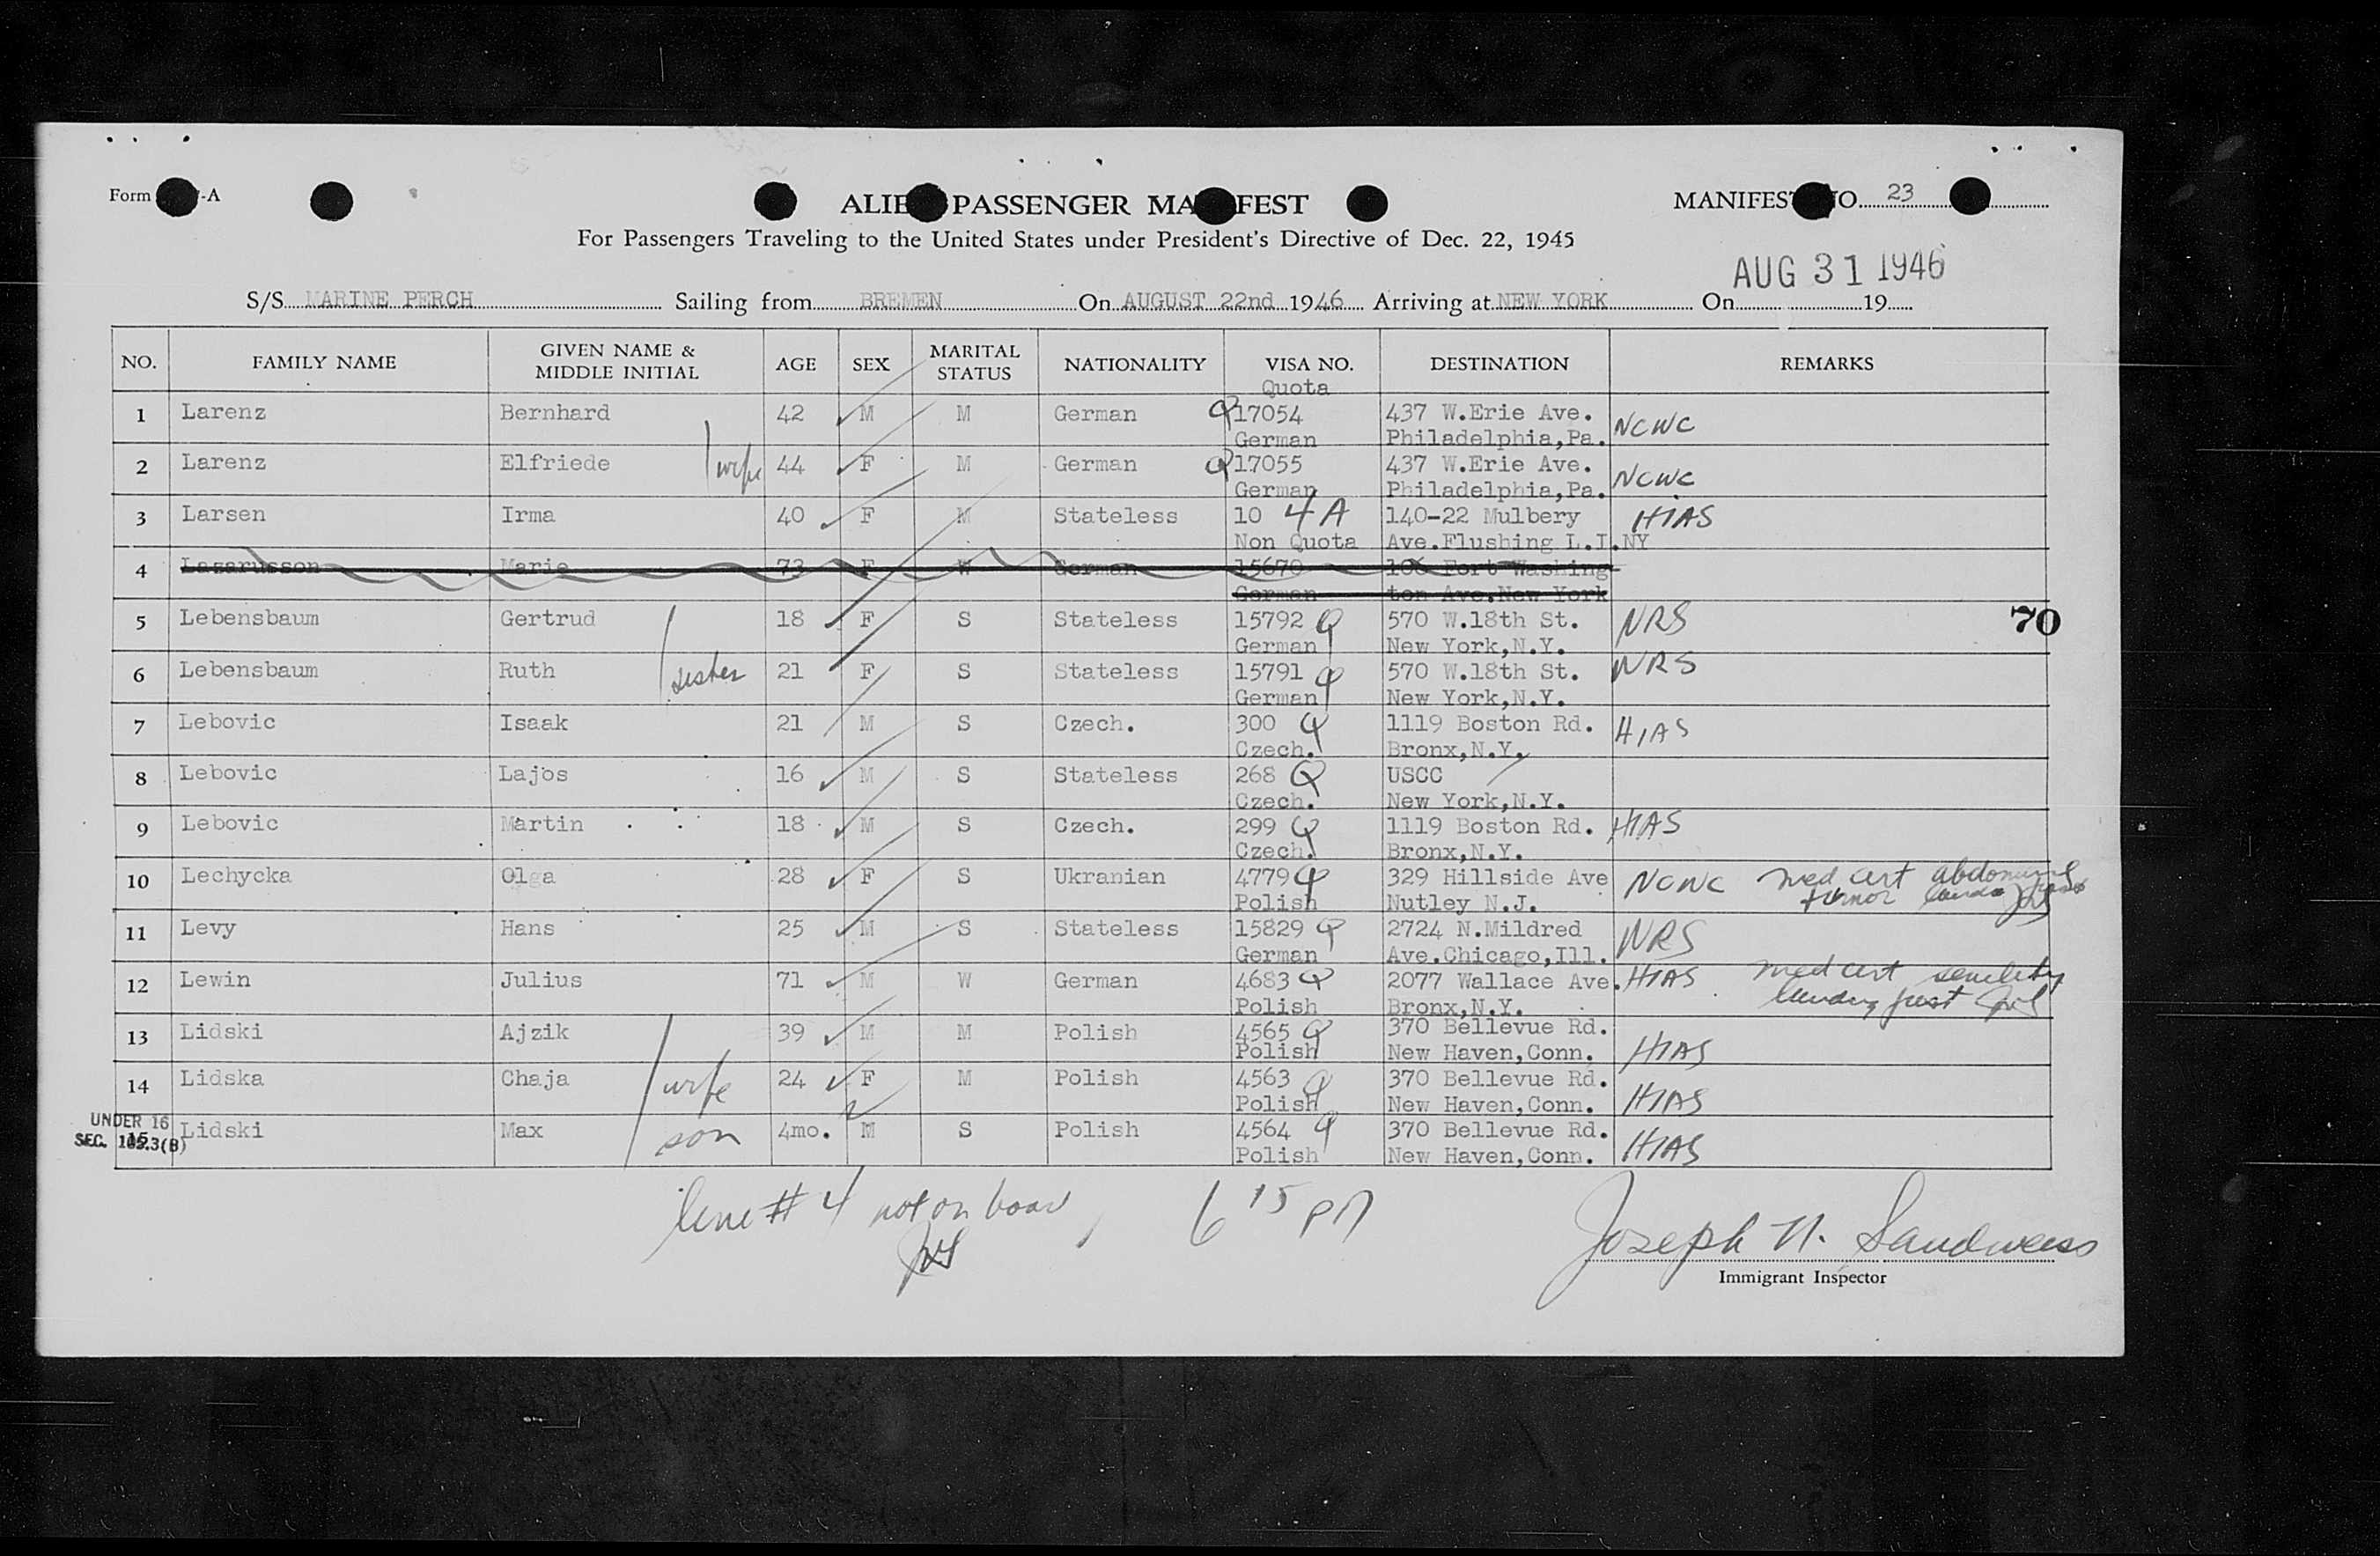 Form -A
ALIEN PASSENGER MANIFEST
MANIFEST NO. 23
For Passengers Traveling to the United States under President's Directive of Dec. 22, 1945
AUG 31 1946
S/S MARINE PERCH Sailing from BREMEN On AUGUST 22nd 1946 Arriving at NEW YORK On 19
NO. FAMILY NAME GIVEN NAME & MIDDLE INITIAL AGE SEX MARITAL STATUS NATIONALITY VISA NO. DESTINATION REMARKS
Quota
1 Larenz Bernhard 42 M M German Q 17054 437 W.Erie Ave. NCWC
German Philadelphia,Pa.
2 Larenz Elfriede wife 44 F M German Q 17055 437 W.Erie Ave. NCWC
German Philadelphia,Pa.
3 Larsen Irma 40 F M Stateless 10 4A 140-22 Mulbery HIAS
Non Quota Ave.Flushing L.I.NY
4 Lazarusson Marie 73 F W German 15670 106 Fort Washing-
German ton Ave.New York
5 Lebensbaum Gertrud 18 F S Stateless 15792 Q 570 W.18th St. NRS 70
German New York,N.Y.
6 Lebensbaum Ruth sister 21 F S Stateless 15791 Q 570 W.18th St. NRS
German New York,N.Y.
7 Lebovic Isaak 21 M S Czech. 300 Q 1119 Boston Rd. HIAS
Czech. Bronx,N.Y.
8 Lebovic Lajos 16 M S Stateless 268 Q USCC
Czech. New York,N.Y.
9 Lebovic Martin 18 M S Czech. 299 Q 1119 Boston Rd. HIAS
Czech. Bronx,N.Y.
10 Lechycka Olga 28 F S Ukranian 4779 Q 329 Hillside Ave NCWC med cert abdominal
Polish Nutley N.J. tumor
11 Levy Hans 25 M S Stateless 15829 Q 2724 N.Mildred NRS
German Ave.Chicago,Ill.
12 Lewin Julius 71 M W German 4683 Q 2077 Wallace Ave. HIAS med cert senility
Polish Bronx,N.Y.
13 Lidski Ajzik 39 M M Polish 4565 Q 370 Bellevue Rd.
Polish New Haven,Conn. HIAS
14 Lidska Chaja wife 24 F M Polish 4563 Q 370 Bellevue Rd.
Polish New Haven,Conn. HIAS
UNDER 16
SEC. 165.3(B)
15 Lidski Max son 4mo. M S Polish 4564 Q 370 Bellevue Rd.
Polish New Haven,Conn. HIAS
line # 4 not on board 6 15 PM
Joseph N. Sandweiss
Immigrant Inspector